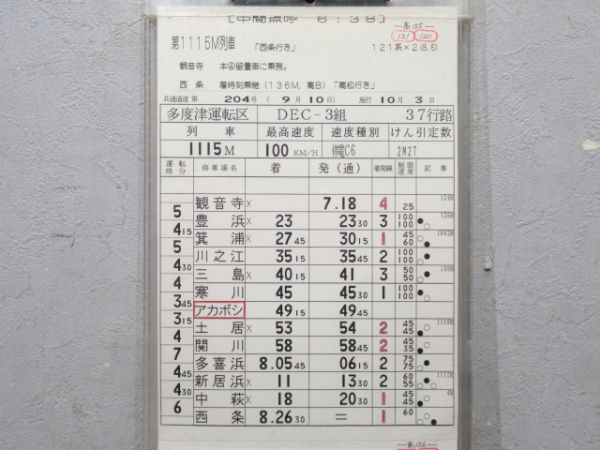 [中間点呼 6:38]
121 120
第1115M列車 「西条行き」 121系×2(8.5)
観音寺 本④留置車に乗務。
西条 着時刻乗継(136M、高B)「高松行き」
共通達第 204号 (9月10日) 施行 10月3日
多度津運転区 DEC-3組 37行路
列車 最高速度 速度種別 けん引定数
1115M 100KM/H 停電C6 2M2T
運転時分 停車場名 着 発(通) 着発線 制限速度 記事
観音寺× 7.18 4 25 124M
5
豊浜× 23 23 30 3 100 100 ● 126M
4 15
箕浦× 27 45 30 15 1 45 60 ○ 1002M
5
川之江 35 15 35 45 2 100 100 ●
4 30
三島× 40 15 41 3 50 50 130M
4
寒川 45 45 30 1 100 100
3 45
アカボシ 49 15 49 45
3 15
土居× 53 54 2 45 45 ○
4
関川 58 58 45 2 45 35
7
多喜浜 8.05 45 06 15 2 75 75
4 45
新居浜× 11 13 30 2 60 55
4 30
中萩× 18 20 30 1 45 45 4M
6
西条 8.26 30 = 1 60